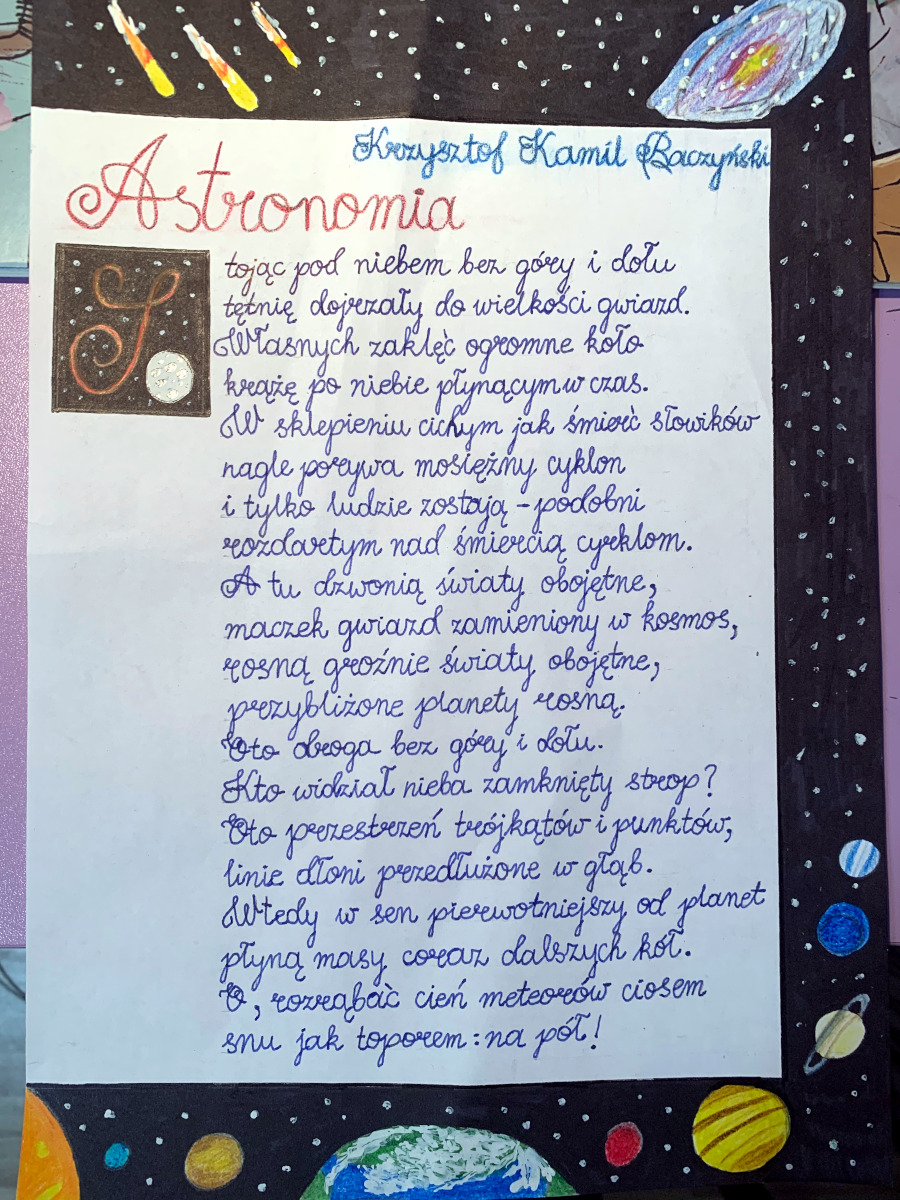 Krzysztof Kamil Baczyński
Astronomia
Stojąc pod niebem bez góry i dołu
tętnię dojrzały do wielkości gwiazd.
Własnych zaklęć ogromne koło
krążę po niebie płynącym w czas.
W sklepieniu cichym jak śmierć słowików
nagle porywa mosiężny cyklon
i tylko ludzie zostają - podobni
rozdartym nad śmiercią cyrklom.
A tu dzwonią światy obojętne,
maczek gwiazd zamieniony w kosmos,
rosną groźnie światy obojętne,
przybliżone planety rosną.
Oto droga bez góry i dołu.
Kto widział nieba zamknięty strop?
Oto przestrzeń trójkątów i punktów,
linie dłoni przedłużone w głąb.
Wtedy w sen pierwotniejszy od planet
płyną masy coraz dalszych kół.
O, rozrąbać cień meteorów ciosem
snu jak toporem: na pół!